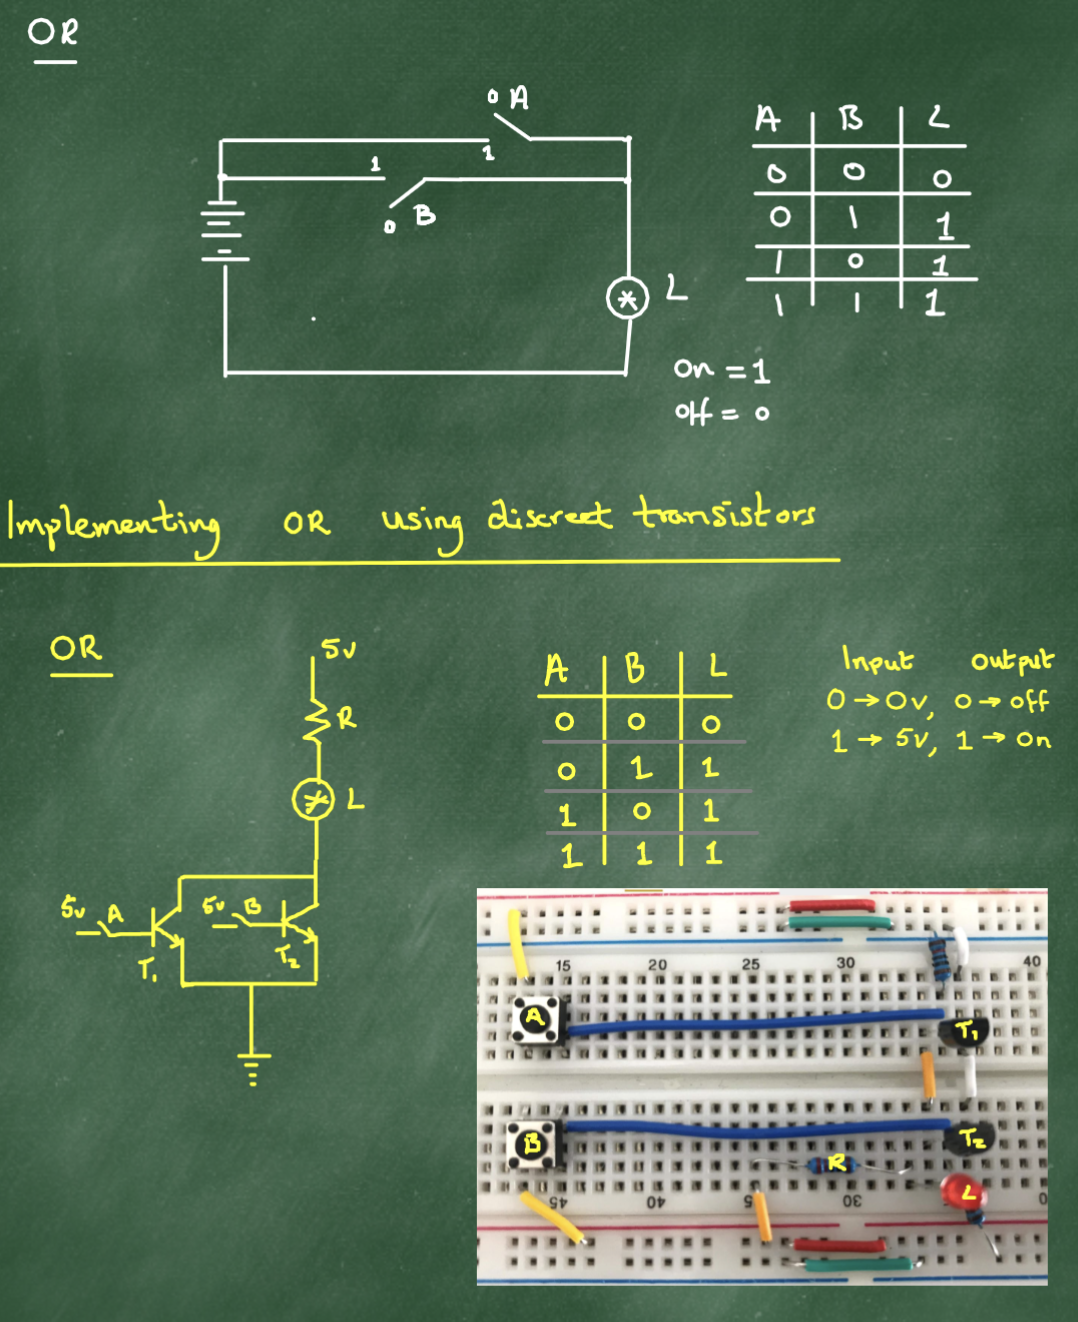 OR
0 A
1
1
B
0
L
A B L
0 0 0
0 1 1
1 0 1
1 1 1
On = 1
Off = 0
Implementing OR using discreet transistors
OR
5v
R
L
5v A
5v B
T1
T2
A B L
0 0 0
0 1 1
1 0 1
1 1 1
Input Output
0 → 0v, 0 → off
1 → 5v, 1 → on
15 20 25 30 40
A
T1
B
T2
R
L
45 40 30